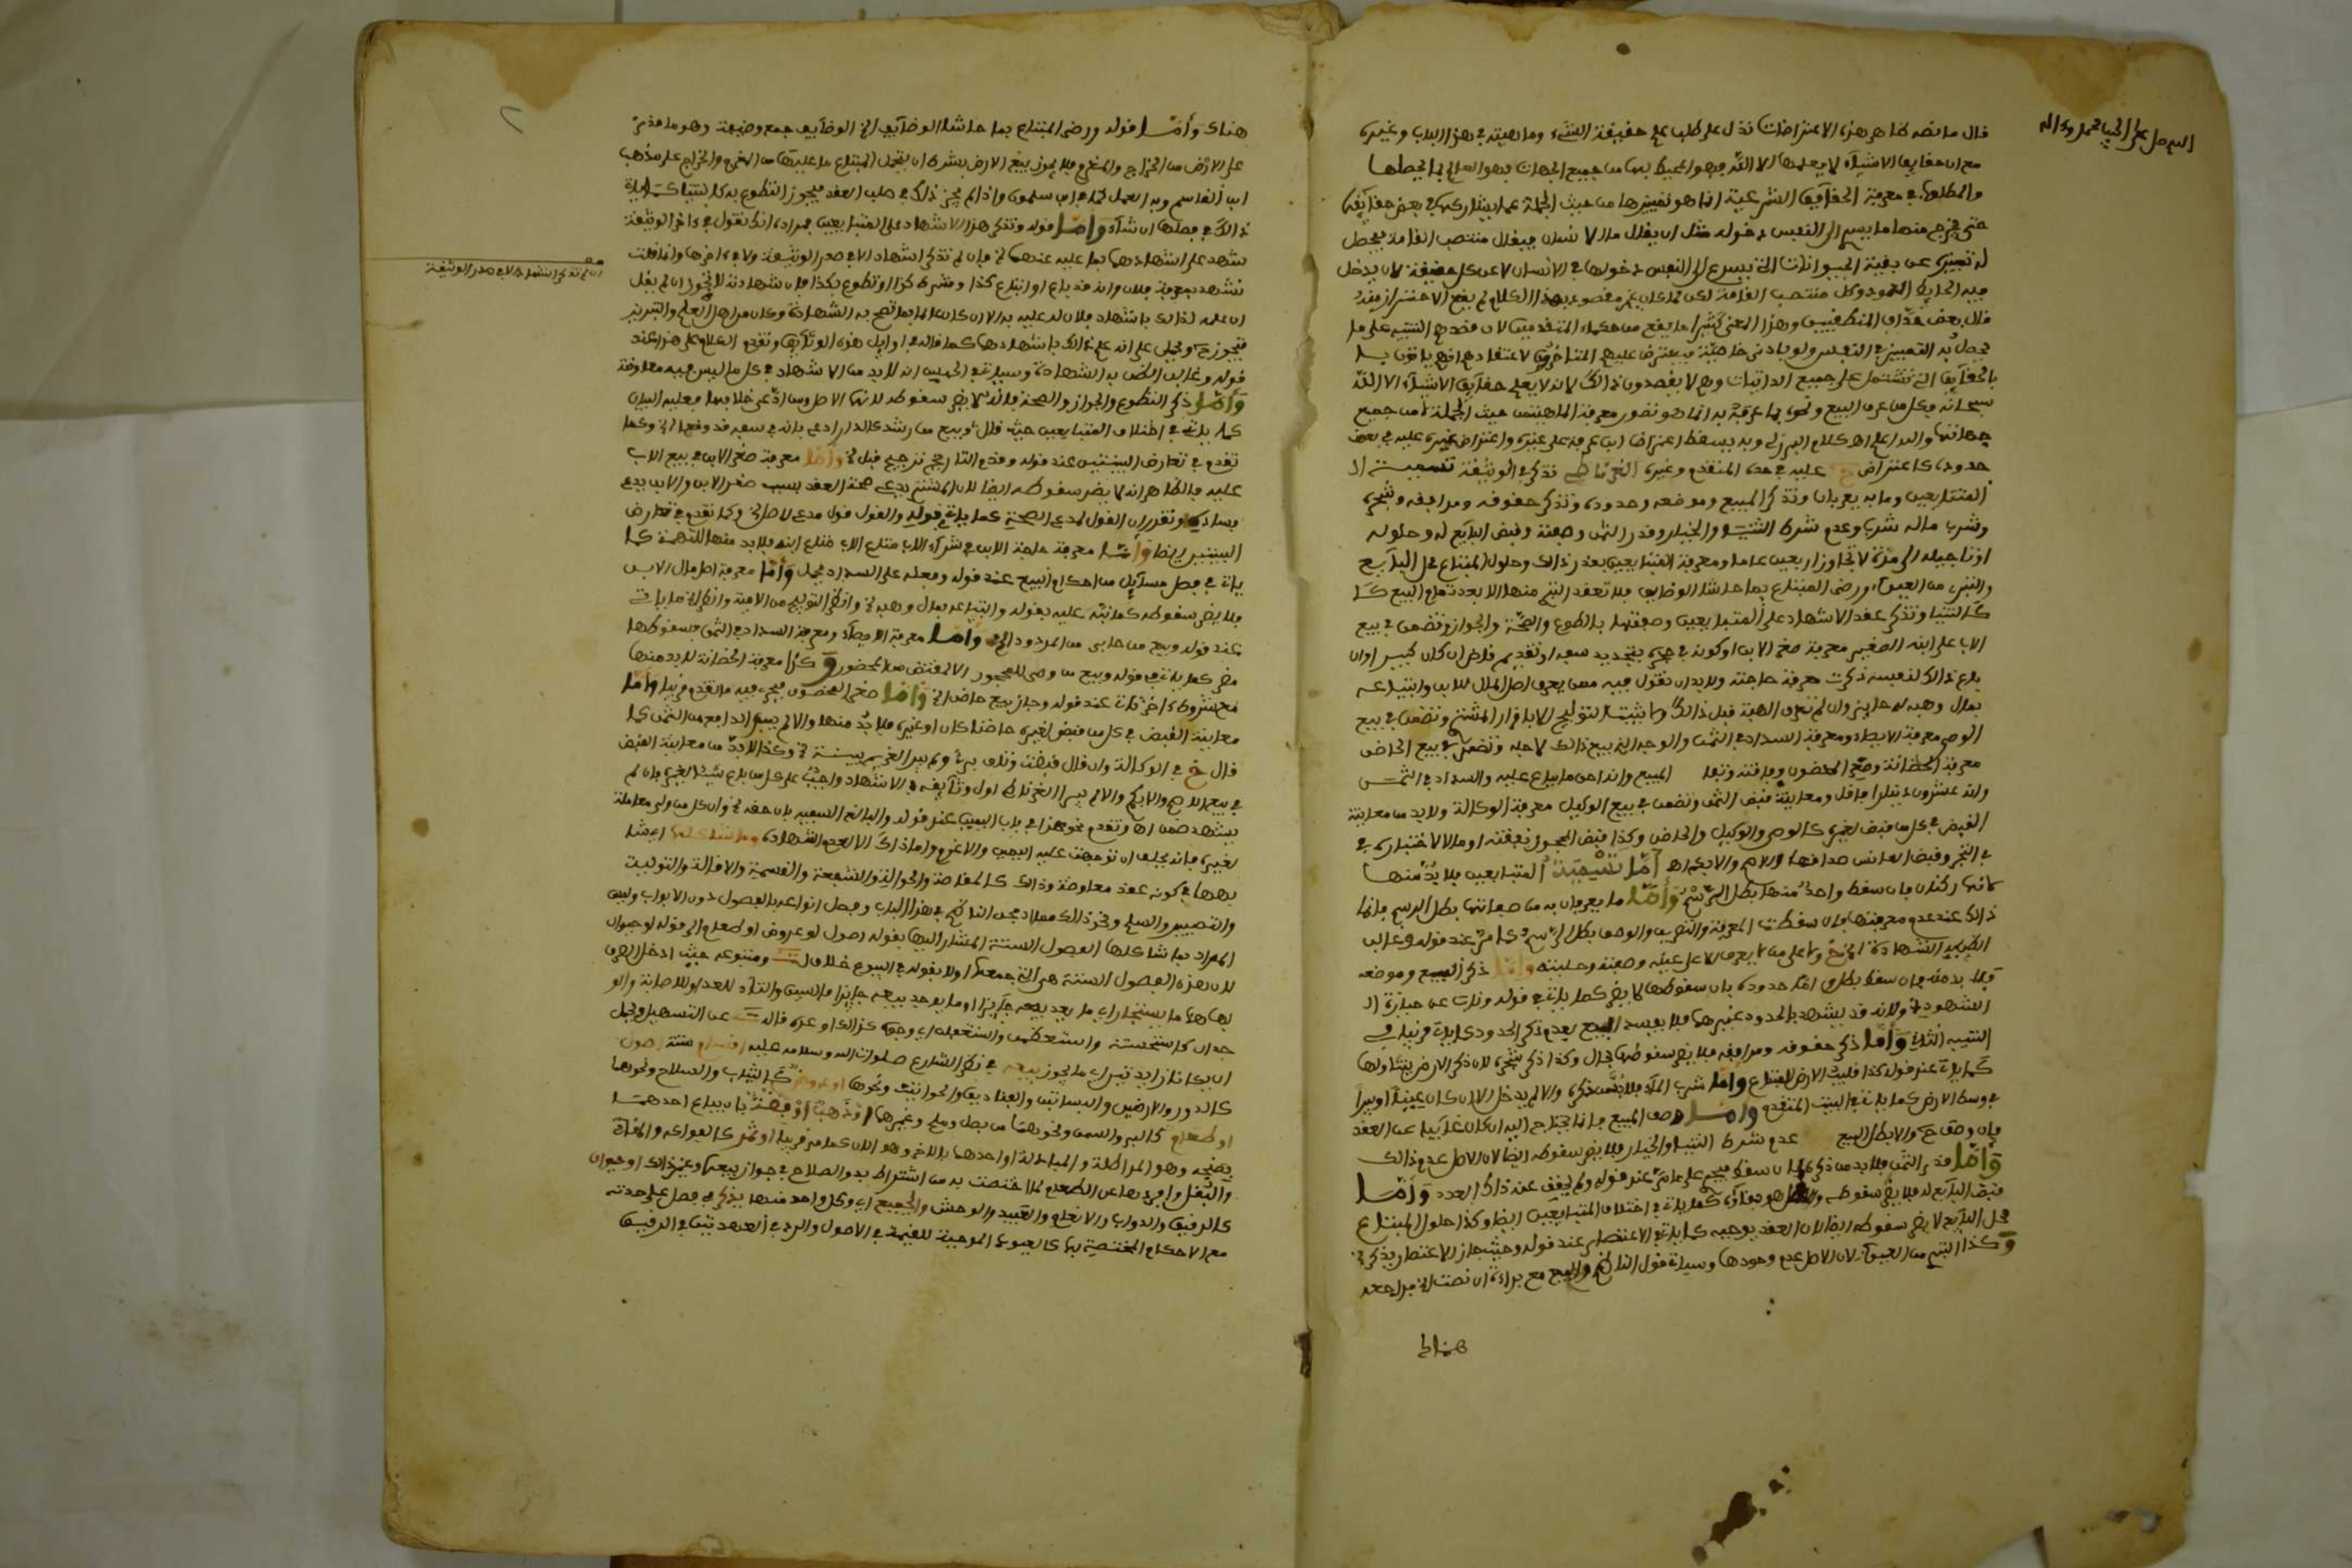 اللهم صل على الحبيب محمد وءاله
قال ما نصه ظاهر هذه الاعتراضات تدل على طلب علم حقيقة الشيء وماهيته في هذا الباب وغيره
مع ان حقايق الاشيآء لا يعلمها الا الله فهو المحيط بها من جميع الجهات فهو العالم بما يحيطها
والمطلوب في معرفة الحقآيق الشرعية انما هو تمييزها من حيث الجملة عما يشاركها في بعض حقآيقها
حتى يخرج منها ما يسرع الى النفس دخوله مثل ان يقال ما الانسان فيقال منتصب القامة فيحصل
له تمييزه عن بقية الحيوانات التي يسرع الى النفس دخولها في الانسان لا عن كل حقيقة لان يدخل
فيه الحايط والعمود وكل منتصب القامة لكن لما كان غير مقصود بهذا الكلام لم يقع الاحتراز منه
قال بعض حذاق المنطقيين وهذا المعنى كثيرا ما يقع من حكماء المتقدمين لان قصدهم التنبيه على ما
يحصل به التمييز في النفس ولو بادنى خاصية فيعترض عليهم المتاخرون لاعتقادهم انهم ياتون بـ
بالحقآيق التي تشتمل على جميع الذاتيات وهم لا يقصدون ذالك لانه لا يعلم حقآيق الاشيآء الا الله
سبحانه فكل من عرف البيع ونحوه بما عرفه به انما هو تصور معرفة الماهية من حيث الجملة لا من جميع
جهاتها والله اعلم اهـ كلام البرزلي وبه يسقط اعتراض ابن عرفة على غيره واعتراض غيره عليه في بعض
حدوده كاعتراض خ عليه في حده المتقدم وغيره الغرناطي تذكر في الوثيقة تسمية الـ
المتبايعين وما به يعرفان وتذكر المبيع وموضعه وحدوده وتذكر حقوقه ومرافقه وشجره
وشرب ماله شرب وعدم شرط الثنيا والخيار وقدر الثمن وصفته وقبض البآيع له وحلوله
او تاجيله الى مدة لا تجاوز اربعين عاما ومعرفة المتبايعين بقدر ذالك وحلول المبتاع محل البآيع
والتبري من العيوب ورضى المبتاع بما حاشا الوظايف فلا تعقد البيع منها الا بعد تمام البيع كـ
كالثنيا وتذكر عقد الاشهاد على المتبايعين وصفتهما بالطوع والصحة والجواز وتضمن في بيع
الاب على ابنه الصغير معرفة صغر الابن او كونه في حجره بتجديد سفه او تقديم قاض ان كان كبيرا وان
باع ذالك لنفسه ذكرت معرفة حاجته ولا بد ان تقول فيه ممن يعرف اصل المال للابن وابتياعه
بمال وهبه له جايز وان لم تعرف الهبة قبل ذالك ولا يثبت التوليج الا باقرار المشتري وتضمن في بيع
الوصي معرفة الايصاء ومعرفة السداد في الثمن والوجه الذي بيع ذالك لاجله وتضمن في بيع الحاضن
معرفة الحضانة وصغر المحضون وفاقته وتفاهة المبيع وانه احق ما يباع عليه والسداد في الثمن
وانه عشرون دينارا فاقل ومعاينة قبض الثمن وتضمن في بيع الوكيل معرفة الوكالة ولا بد من معاينة
القبض في كل من قبض لغيره كالوصي والوكيل والحاضن وكذا قبض المحجور نفقته او مالا لاختباره في
في التجر وقبض العانس صداقها والام والابكم اهـ أما تسمية المتبايعين فلا بد منها
لانهما ركنان فان سقط واحد منهما بطل الرسم وأما ما يعرفان به من صفاتهما بطل الرسم فانما
ذالك عند عدم معرفتهما فان سقطت المعرفة والتعريف والوصف بطل الرسم كما مر عند قوله وغالب
الظن به الشهادة الخ ولا على من لا يعرف الا على عينه وصفته وحليته وأما ذكر المبيع وموضعه
فلا بد منه فان سقط بطل واما حدوده فان سقوطها لا يضر كما ياتي في قوله وناب عن حيازة الـ
الشهود الخ ولانه قد يشهد بالحدود غيرهما فلا يفسد البيع بعدم ذكر الحدود كما ياتي قريبا في
التنبيه الثاني وأما ذكر حقوقه ومرافقه فلا يضر سقوطها بحال وكذا ذكر شجره لان ذكر الارض يتناولها
كما ياتي عند قوله كذا قليب الارض للمبتاع وأما شرب المآء فلا بد من ذكره والا لم يدخل الا ان كان عينا او بيرا
في وسط الارض كما ياتي في البيت المتقدم وأما وصف المبيع فانما يحتاج اليه ان كان غآيبا عن العقد
فان وصف صح والا بطل البيع عدم شرط الثنيا والخيار فلا يضر سقوطه ايضا لان الاصل عدم ذالك
وأما قدر الثمن فلا بد من ذكره فان سقط فيجري على ما مر عند قوله ولم يحقق عند ذاك العدد وأما
قبض البآيع له فلا يضر سقوطه والاصل هو بقآؤه كما ياتي في اختلاف المتبايعين ايضا وكذا حلول المبتاع
محل البآيع لا يضر سقوطه ايضا لان العقد يوجبه كما ياتي في الاعتصار عند قوله وحيث جاز الاعتصار يذكر الخ
وكذا التبري من العيوب لان الاصل عدم وجودها وسياتي قول الناظم والبيع مع براءة ان نصت الخ فراجعه
هناك
هناك وأما قوله ورضى المبتاع بما حاشا الوظآيف الخ الوظآيف جمع وظيفة وهو ما قدر
على الارض من الخراج والمغرم فلا يجوز بيع الارض بشرط ان يتحمل المبتاع ما عليها من المغرم والخراج على مذهب
ابن القاسم وبه العمل كما في ابن سلمون واذا لم يجز ذالك في صلب العقد فيجوز التطوع به كالثنيا كما ياتي
ذالك في فصلها ان شآء الله وأما قوله وتذكر هذا الاشهاد على المتبايعين فمراده انك تقول في ءاخر الوثيقة
شهد على اشهادهما بما عليه عندهما الخ فان لم تذكر اشهاد الا في صدر الوثيقة ولا في ءاخرها وانما قلت
ان لم تذكر اشهاد لا في صدر الوثيقة
تشهد بمعرفة فلان وانه قد باع او ابتاع كذا وشرط كذا او تطوع بكذا فان شهادته لا تجوز ان لم يقل
ان علمه لذالك باشهاد فلان له عليه به الا ان كان عالما بما تصح به الشهادة وكان من اهل العلم والتبريز
فتجوز ويحمل على انه علم ذالك باشهادهما كما قاله في اوايل هذه الوثآيق وتقدم الكلام على هذا عند
قوله وغالب الظن به الشهادة وسياتي في الحبس انه لا بد من الاشهاد في كل ما ليس فيه معاوضة
وأما ذكر التطوع والجواز والصحة فانه لا يضر سقوطه لانها الاصل ومن ادعى خلافها فعليه البيان
كما ياتي في اختلاف المتبايعين حيث قال وبيع من رشد كالدار ادعى بانه في سفه قد وقع الخ وكما
تقدم في تعارض البينتين عند قوله وقدم التاريخ ترجيح قبل الخ وأما معرفة صغر الابن في بيع الاب
عليه فالظاهر انه لا يضر سقوطه ايضا لان المشتري يدعي صحة العقد بسبب صغر الابن والابن يدعي
فساده وتقرر ان القول لمدعي الصحة كما ياتي في قوله والقول قول مدع للاصل الخ وكما تقدم في تعارض
البينتين ايضا وأما معرفة حاجة الابن في شرآء الاب متاع الاب متاع ابنه فلا بد منها للتهمة كما
ياتي في فصل مسآيل من احكام البيع عند قوله وفعله على السداد يحمل وأما معرفة اصل مال الابن
فلا يضر سقوطه كما نبه عليه بقوله وابتياعه بمال وهبه الخ وانظر التوليج من اللامية وانظر الخ ما ياتي
عند قوله وبيع من حابى من المردود الخ وأما معرفة الايصآء ومعرفة السداد في الثمن فسقوطها
مضر كما ياتي في قوله وبيع من وصي للمحجور الا لمقتض من المحظور وكذا معرفة الحضانة لا بد منها
مع شروط اخر تاتي عند قوله وجاز بيع حاضن الخ وأما صغر المحضون فيجري فيه ما تقدم قريبا وأما
معاينة القبض في كل من قبض لغيره حاضنا كان او غيره فلا بد منها والا لم يبرإ الدافع من الثمن كما
قال خ في الوكالة وان قال قبضت وتلف برئ ولم يبرإ الغريم الا ببينة الخ وكذا لا بد من معاينة القبض
في بيع الاصم والابكم والا لم يبرإ الغرناطي اول وثآيقه في الاشهاد واجب على كل من باع شيئا لغيره فان لم
يشهد ضمن اهـ وتقدم نحو هذا في باب اليمين عند قوله والبالغ السفيه بان حقه الخ وان كل من ولي معاملة
لغيره فانه يحلف ان توجهت عليه اليمين والا غرم وما ذاك الا لعدم الشهادة وما شاكلها اي شا
بهها في كونه عقد معاوضة وذالك كالمقاصة والحوالة والشفعة والقسمة والاقالة والتولية
والتصيير والسلم ونحو ذالك مما ادمجه الناظم في هذا الباب وفصل انواعه بالفصول دون الابواب وليس
المراد بما شاكلها الفصول الستة المشار اليها بقوله اصول او عروض او طعام الى قوله او حيوان
لان هذه الفصول الستة هي التي جمعها اولا بقوله في البيوع خلاف لـ ومتبوعه حيث ادخل الصرف
فيما هنا ما يستجاز اي ما يعد بيعه جآيزا او ما يوجد بيعه جايزا فالسين والتآء للعد او للاصابة والو
جدان كاستحسنته واستعظمته واستسهله اي وجده كذالك او عده قاله ت عن التسهيل ويحتمل
ان يكونا زايدتين اي ما يجوز بيعه في نظر الشارع صلوات الله وسلامه عليه اقسام ستة اصول
كالدور والارضين والبساتين والفنادق والحوانيت ونحوها او عروض كالثياب والسلاح ونحوهما
او طعام كالبر والسمن ونحوهما من بصل وملح وغيرهما او ذهب او فضة بان يباع احدهما
بصنجه وهو المراطلة والمبادلة او احدهما بالاخر وهو الصرف كما مر قريبا او ثمر كالفواكه والمقآثي
والبقل وافردها عن الطعام لما اختصت به من اشتراط بدو الصلاح في جواز بيعها وغير ذالك او حيوان
كالرقيق والدواب والانعام والعبيد والوحش والجميع اي وكل واحد منها يذكر في فصل على حدته
مع الاحكام المختصة بها كالعيوب الموجبة للقيمة في الاصول والرد في العهدتين في الرقيق